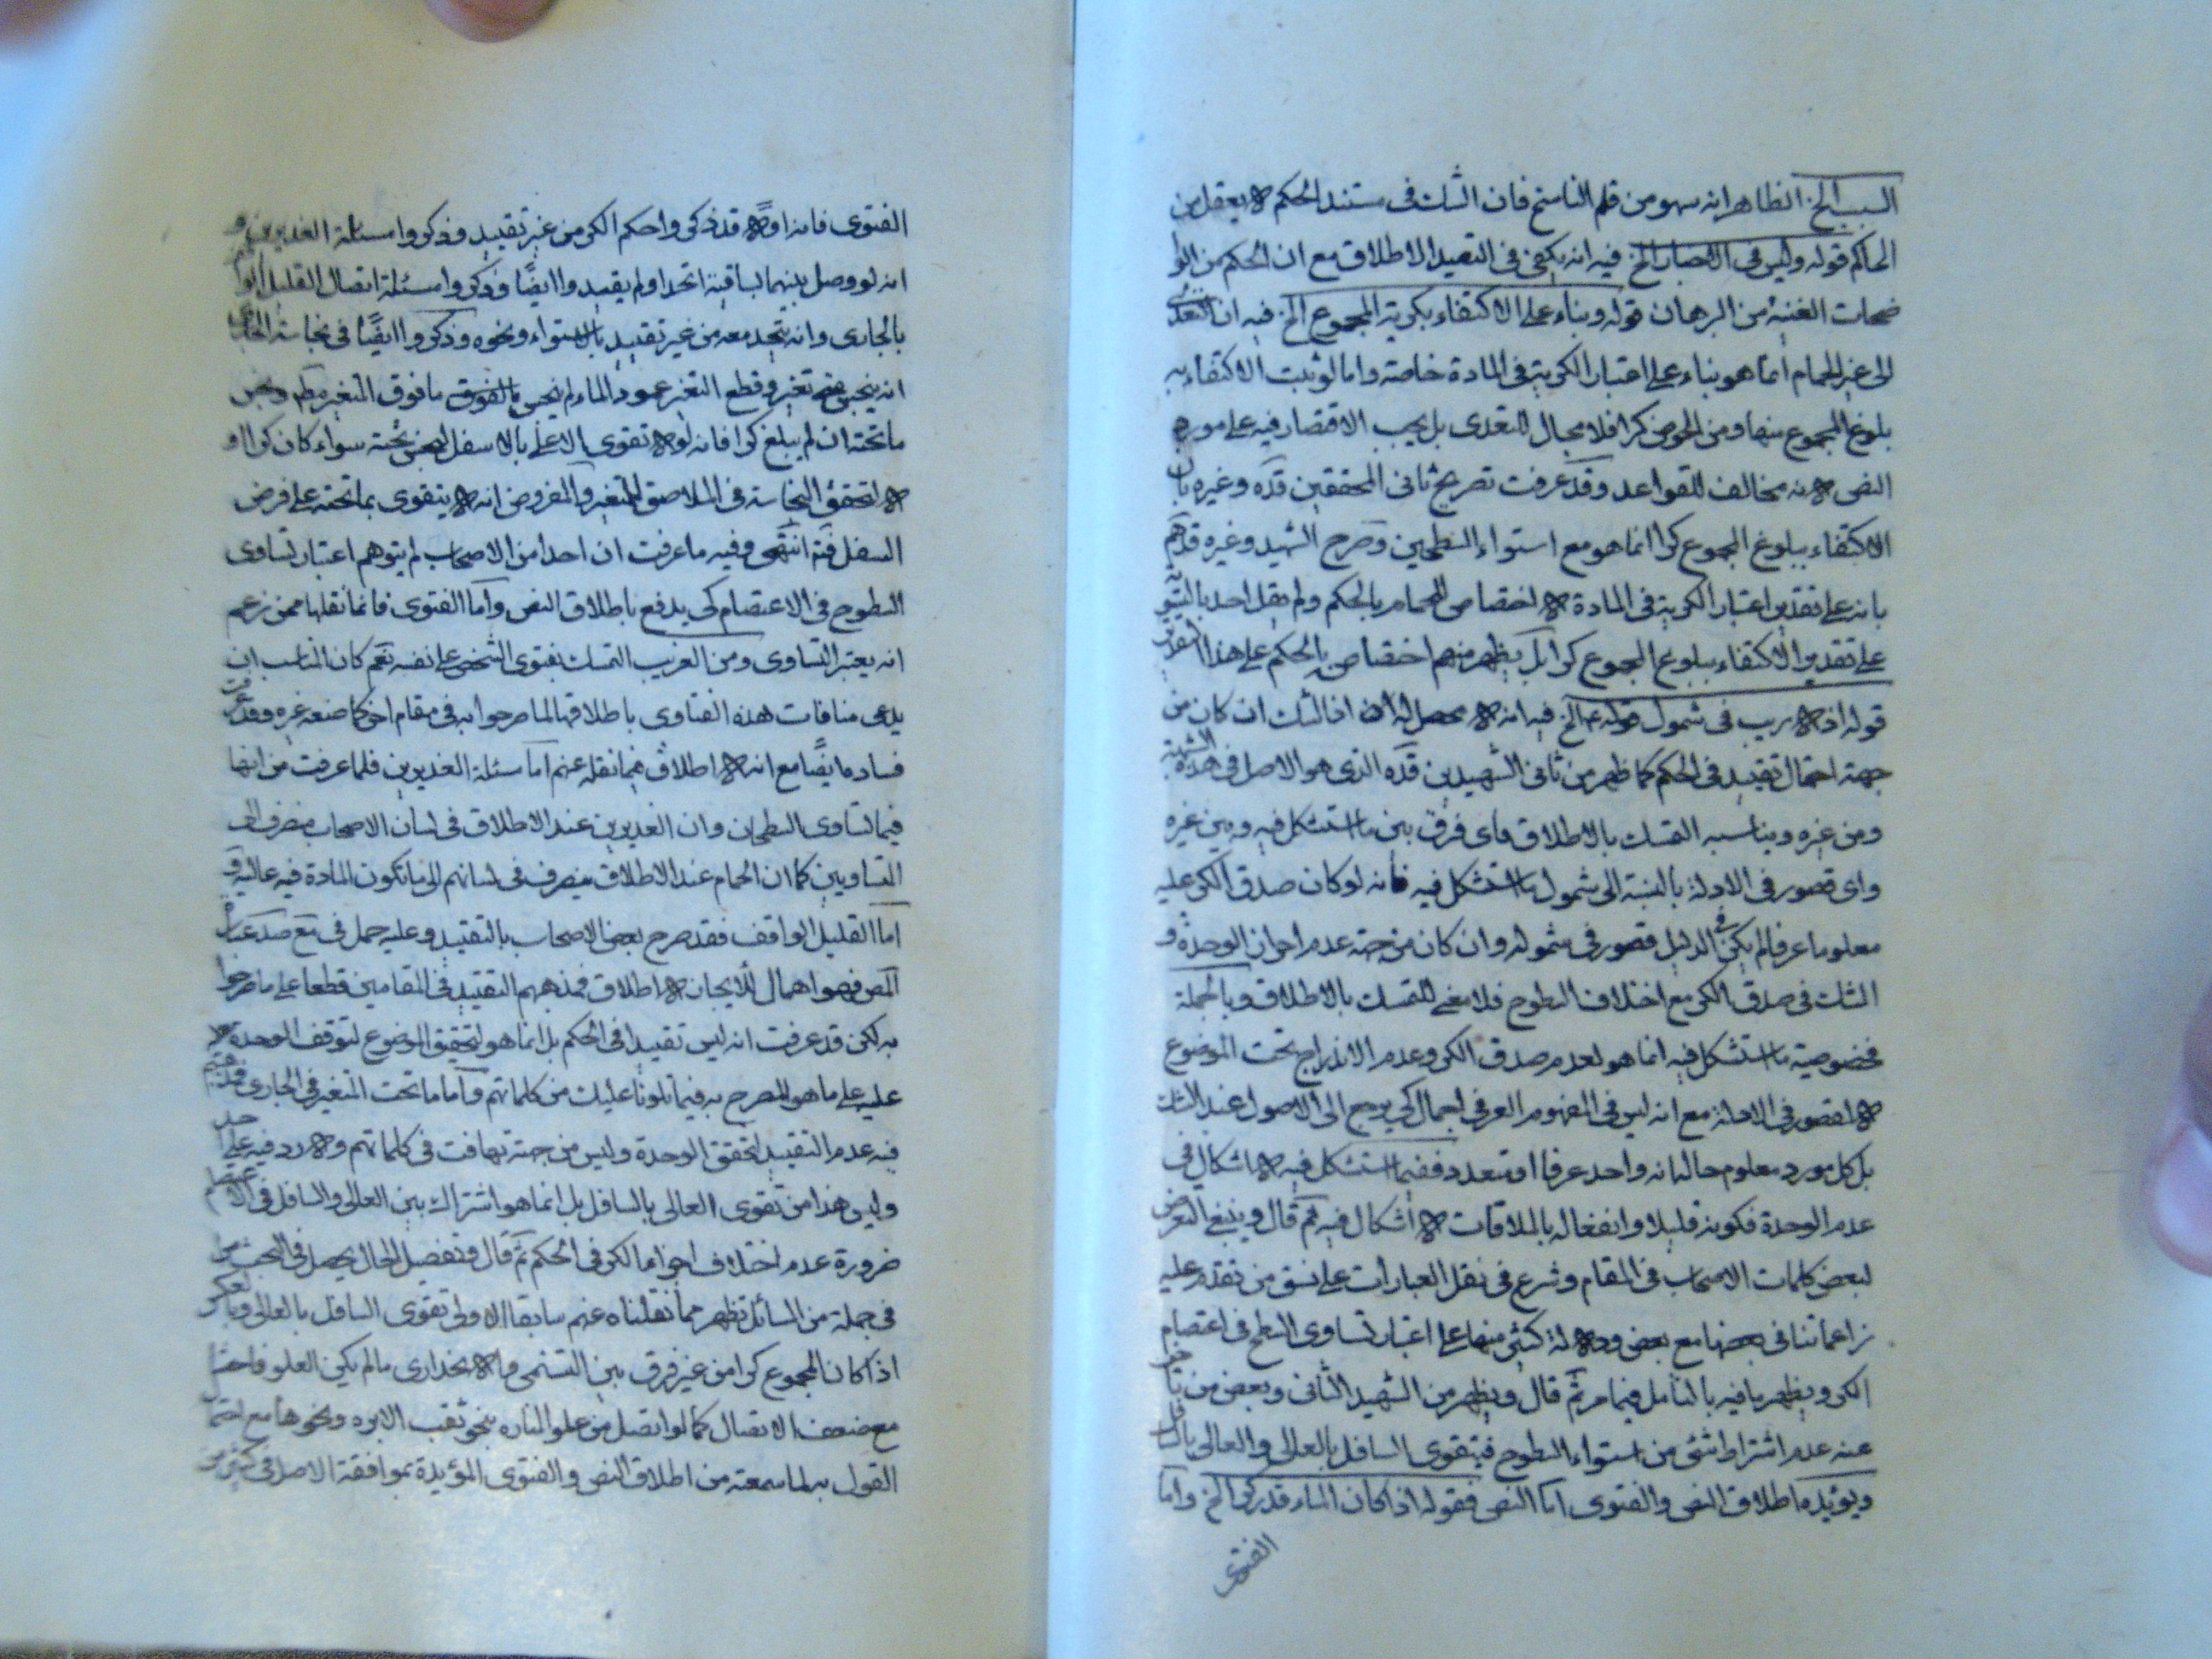 السبب الخ الظاهر انه سهو من قلم الناسخ فان الشك فى مستند الحكم لا يعقل من
الحاكم قوله وليس فى الاخبار الخ فيه انه يكفى فى التقييد الاطلاق مع ان الحكم من الوا
ضحات الغنية من البرهان قوله وبناء على الاكتفاء بكرية المجموع الخ فيه ان التعدى
الى غير الحمام انما هو بناء على اعتبار الكرية فى المادة خاصة واما لو ثبت الاكتفاء به
بلوغ المجموع منها ومن الحوض كرا فلا مجال للتعدى بل يجب الاقتصار فيه على مورد
النص لانه مخالف للقواعد وقد عرفت تصريح ثانى المحققين قده وغيره بان
الاكتفاء ببلوغ المجموع كرا انما هو مع استواء السطحين وصرح الشهيد وغيره قدهم
بانه على تقدير اعتبار الكرية فى المادة لا اختصاص للحمام بالحكم ولم يقل احد بالتسوية
على تقدير الاكتفاء ببلوغ المجموع كرا بل يظهر منهم اختصاصه بالحكم على هذا التقدير
قوله اذ لا ريب فى شمول قوله ع الخ فيه انه لا محصل له اذ الشك ان كان من
جهة احتمال تقييد فى الحكم كما ظهر من ثانى الشهيدين قده الذى هو الاصل فى هذه الشبهة
ومن غيره ويناسبه التمسك بالاطلاق فاى فرق بين ما استشكل فيه وبين غيره
واى قصور فى الادلة بالنسبة الى شمول ما استشكل فيه فانه لو كان صدق الكر عليه
معلوما عرفا لم يكن فى الدليل قصور فى شموله وان كان من جهة عدم احراز الوحدة و
الشك فى صدق الكر مع اختلاف السطوح فلا معنى للتمسك بالاطلاق وبالجملة
فخصوصية ما استشكل فيه انما هو لعدم صدق الكر وعدم الاندراج تحت الموضوع
لا لقصور فى الادلة مع انه ليس فى المفهوم العرفى اجمال كى يرجع الى الاصول عند الشك
بل كل مورد معلوم حاله انه واحد عرفا او متعدد ففيما استشكل فيه لا اشكال فى
عدم الوحدة فكونه قليلا وانفعاله بالملاقات لا اشكال فيه ثم قال وينبغى التعرض
لبعض كلمات الاصحاب فى المقام وشرع فى نقل العبارات على نسق من تقدم عليه
زاعما تنافى بعضها مع بعض ودلالة كثير منها على اعتبار تساوى السطح فى اعتصام
الكر ويظهر ما فيه بالتأمل فيما مر ثم قال ويظهر من الشهيد الثانى وبعض من تأخر
عنه عدم اشتراط شئ من استواء السطوح فيتقوى السافل بالعالى والعالى بالسافل
ويؤيده اطلاق النص والفتوى اما النص فقوله اذا كان الماء قدر كر الخ واما
الفتوى
الفتوى فانه اولا قد ذكروا حكم الكر من غير تقييد وذكروا مسئلة الغديرين و
انه لو وصل بينهما بساقية اتحدا ولم يقيدوا ايضا وذكروا مسئلة اتصال القليل الوا
بالجارى وانه يتحد معه من غير تقييد بالاستواء ونحوه وذكروا ايضا فى نجاسة الجارى
انه ينجس مع تغيره وقطع التغير عمود الماء لم ينجس ما فوق المتغير مطم ونجس
ما تحته ان لم يبلغ كرا فانه لو لا تقوى الاعلى بالاسفل لنجس تحته سواء كان كرا او
لا لتحقق النجاسة فى الملاصق للمتغير والمفروض انه لا يتقوى بما تحته على فرض
السفل فتم انتهى وفيه ما عرفت ان احدا من الاصحاب لم يتوهم اعتبار تساوى
السطوح فى الاعتصام كى يدفع باطلاق النص واما الفتوى فانما نقلها ممن زعم
انه يعتبر التساوى ومن الغريب التمسك بفتوى الشخص على نفسه نعم كان المناسب ان
يدعى منافات هذه الفتاوى باطلاقها لما صرحوا به فى مقام اخر كما صنعه غيره وقد عرفت
فساده ايضا مع انه لا اطلاق فيما نقله عنهم اما مسئلة الغديرين فلما عرفت من انها
فيما تساوى السطحان وان الغديرين عند الاطلاق فى لسان الاصحاب منصرف الى
التساويين كما ان الحمام عند الاطلاق ينصرف فى لسانهم الى ما تكون المادة فيه عالية و
اما القليل الواقف فقد صرح بعض الاصحاب بالتقييد وعليه حمل فى مع صد عبارة
المص فهو اهمال للايجاز لا اطلاق فمذهبهم التقييد فى المقامين قطعا على ما صرحوا
به لكن قد عرفت انه ليس تقييدا فى الحكم بل انما هو لتحقيق الموضوع لتوقف الوحدة
عليه على ما هو المصرح به فيما تلونا عليك من كلماتهم واما ما تحت المتغير فى الجارى
فيه عدم التقييد لتحقق الوحدة وليس من جهة تهافت فى كلماتهم ولا رد فيه على احد
وليس هذا من تقوى العالى بالسافل بل انما هو اشتراك بين العالى والسافل فى الاعتصام
ضرورة عدم اختلاف اجزاء الكر فى الحكم ثم قال وتفصيل الحال يحصل فى البحث
فى جملة من المسائل تظهر مما نقلناه عنهم سابقا الاولى تقوى السافل بالعالى وبالعكس
اذا كان المجموع كرا من غير فرق بين التسنمى والانحدارى ما لم يكن العلو فاحشا
مع ضعف الاتصال كما لو اتصل من علو المناره بنحو ثقب الابره ونحوها مع احتمال
القول به لما سمعته من اطلاق النص والفتوى المؤيدة بموافقة الاصل فى كثير من